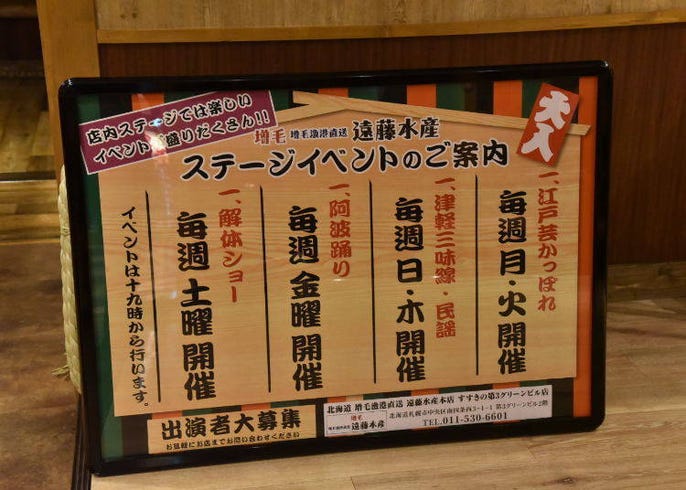 店内ステージでは楽しい
イベント盛りだくさん!!
増毛 増毛漁港直送 遠藤水産
ステージイベントのご案内
大入
一、江戸芸かっぽれ
毎週 月・火 開催
一、津軽三味線・民謡
毎週 日・木 開催
一、阿波踊り
毎週 金曜 開催
一、解体ショー
毎週 土曜 開催
イベントは十九時から行います。
出演者大募集
お気軽にお店までお問い合わせください
北海道 増毛漁港直送 遠藤水産本店 すすきの第3グリーンビル店
増毛
増毛漁港直送 遠藤水産
北海道札幌市中央区南四条西3-1-1 第3グリーンビル2階
TEL.011-530-6601